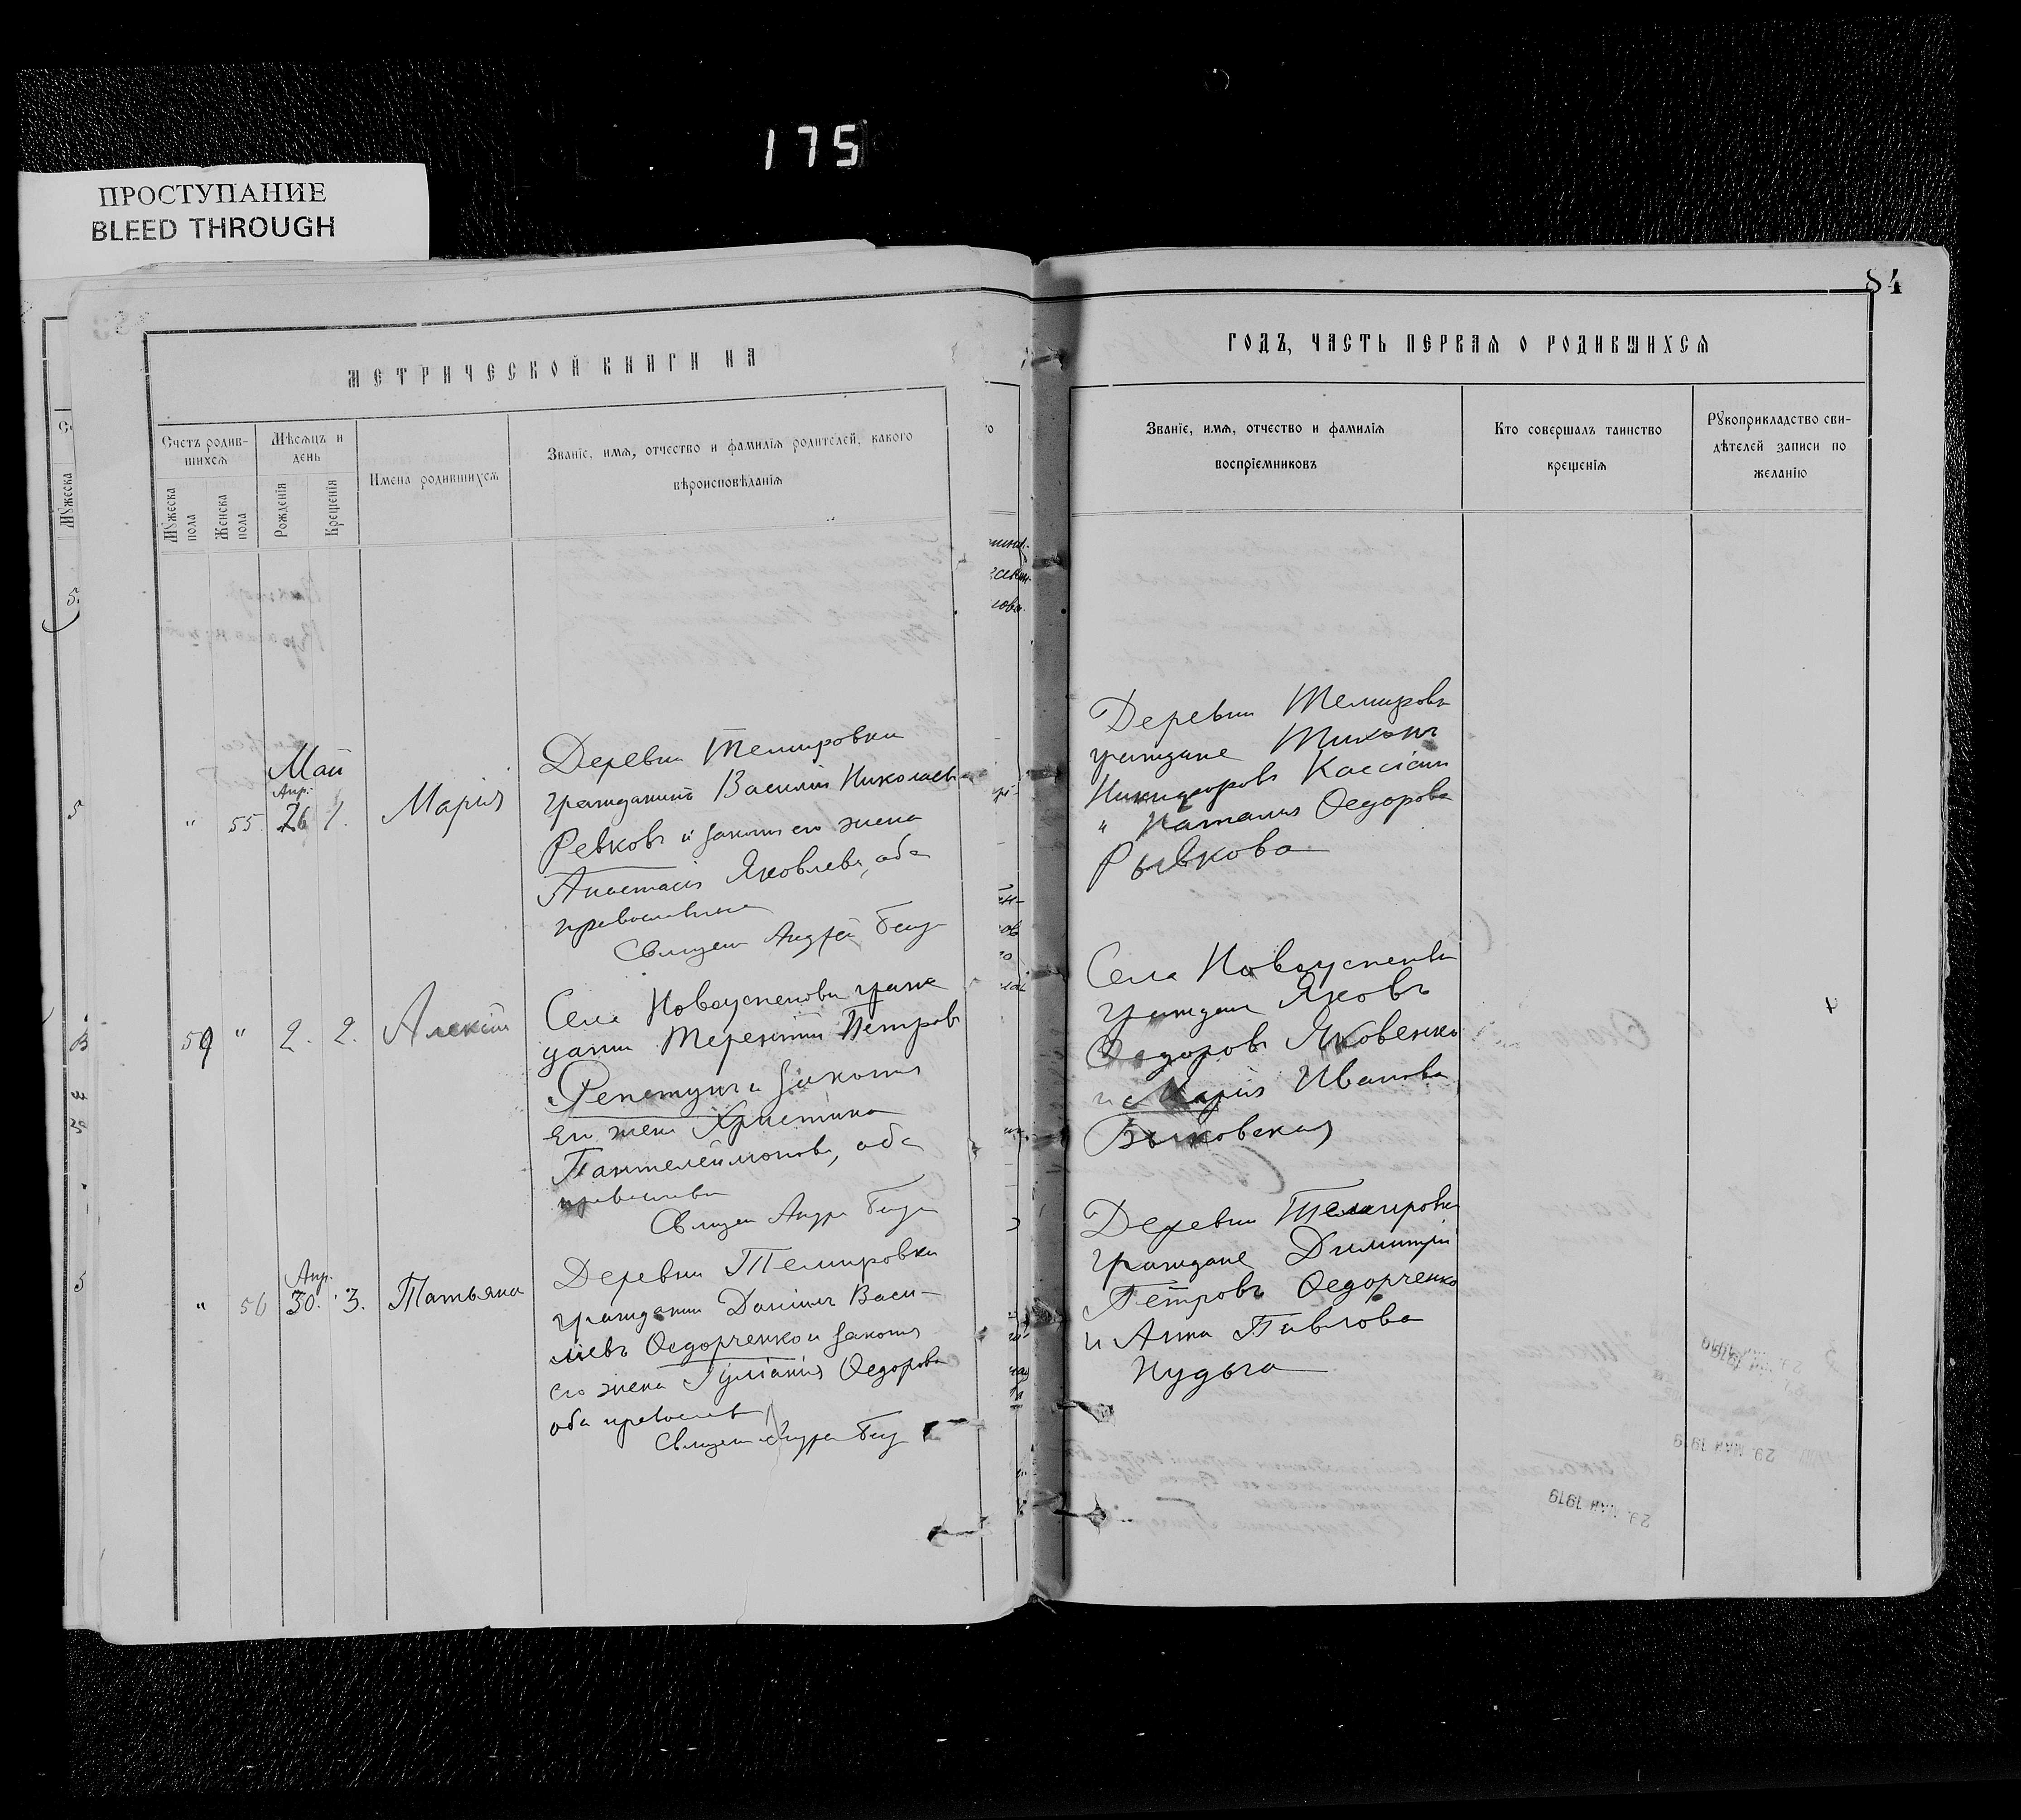 175
ПРОСТУПАНИЕ
BLEED THROUGH
84
МЕТРИЧЕСКОЙ КНИГИ НА
Счетъ родив-
шихся
Мѣсяцъ и
день
Имена родившихся
Званіе, имя, отчество и фамилія родителей, какого
вѣроисповѣданія
Мужеска
пола
Женска
пола
Рожденія
Крещенія
Май
Апр.
" 55. 26 1. Марія
Деревни Темировки
гражданинъ Василій Николаевъ
Ревковъ и законн его жена
Анастасія Яковлева, оба
православные
Священ Андрей
59 " 2. 2. Алексій
Села Новоуспеновки граж
данин Терентій Петровъ
Репетунъ и законная
его жена Христина
Пантелеймонова, оба
православн
Священ Андре
Апр.
" 56 30. 3. Татьяна
Деревни Темировки
гражданин Даніилъ Васи-
ліевъ Ѳедорченко и законная
его жена Іуліанія Ѳедорова
оба православ
Священ Андре
ГОДЪ, ЧАСТЬ ПЕРВАЯ О РОДИВШИХСЯ
Званіе, имя, отчество и фамилія
воспріемниковъ
Кто совершалъ таинство
крещенія
Рукоприкладство сви-
дѣтелей записи по
желанію
Деревни Темировки
граждане Тихонъ
Никифоровъ Кассіан
" Наталия Ѳедорова
Рывкова
Села Новоуспеновки
граждане Яковъ
Ѳедоровъ Яковенко
и Марія Иванова
Быковская
Деревни Темировки
граждане Димитрій
Петровъ Ѳедорченко
и Анна Павлова
Нудьга
29. МАЯ 1979
29. МАЯ 1979